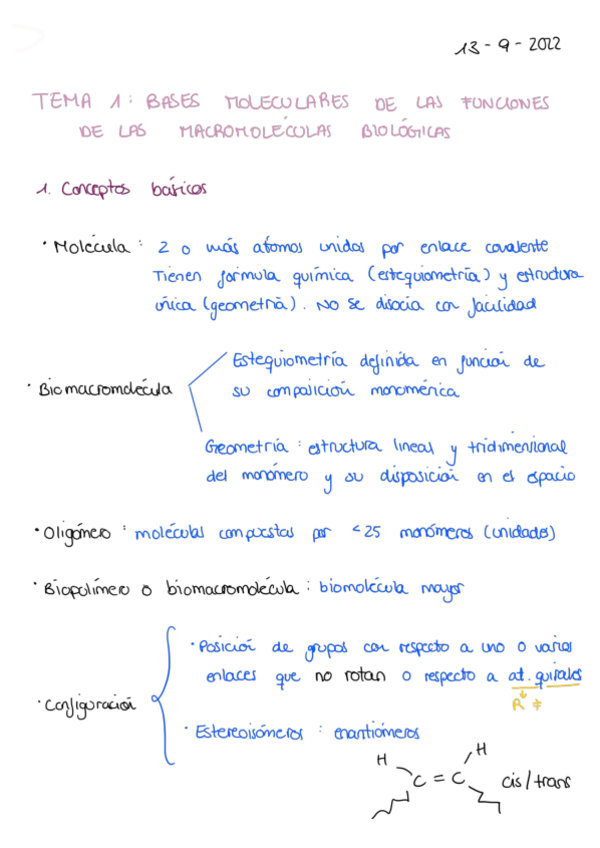 13-9-2022
TEMA 1: BASES MOLECULARES DE LAS FUNCIONES
DE LAS MACROMOLÉCULAS BIOLÓGICAS
1. Conceptos básicos
· Molécula: 2 o más átomos unidos por enlace covalente
Tienen fórmula química (estequiometría) y estructura
única (geometría). No se disocia con facilidad
· Biomacromolécula
Estequiometría definida en función de
su composición monomérica
Geometría: estructura lineal y tridimensional
del monómero y su disposición en el espacio
· Oligómero: moléculas compuestas por <25 monómeros (unidades)
· Biopolímero o biomacromolécula: biomolécula mayor
· Configuración
· Posición de grupos con respecto a uno o varios
enlaces que no rotan o respecto a at. quirales
R ≠
· Estereoisómeros: enantiómeros
H H
C = C cis/trans